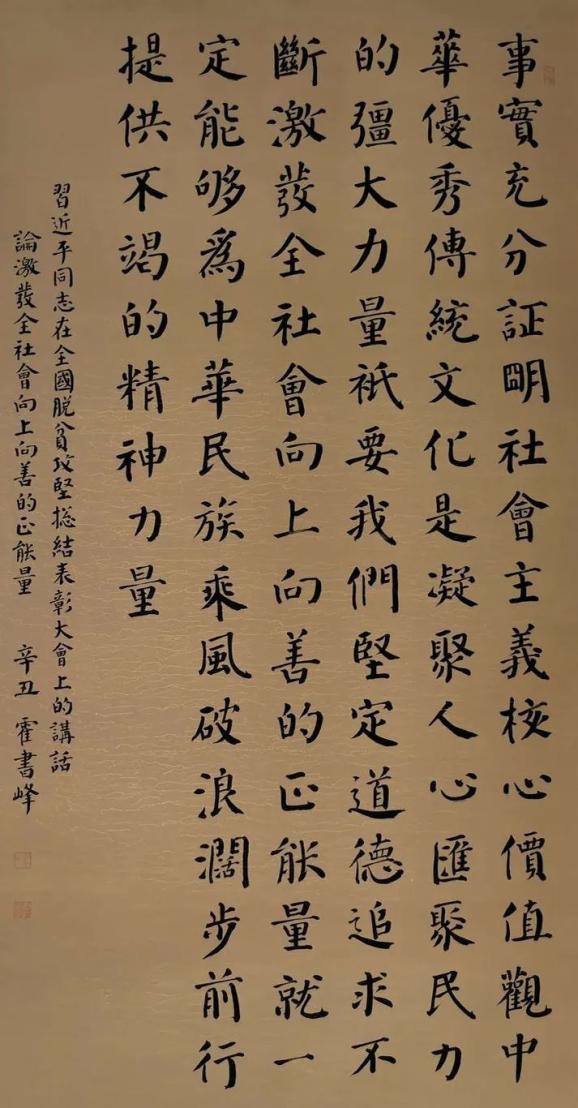 事實充分証明社會主義核心價值觀中
華優秀傳統文化是凝聚人心匯聚民力
的彊大力量衹要我們堅定道德追求不
斷激發全社會向上向善的正能量就一
定能够爲中華民族乘風破浪濶步前行
提供不竭的精神力量
習近平同志在全國脱貧攻堅總結表彰大會上的講話
論激發全社會向上向善的正能量 辛丑 霍書峰